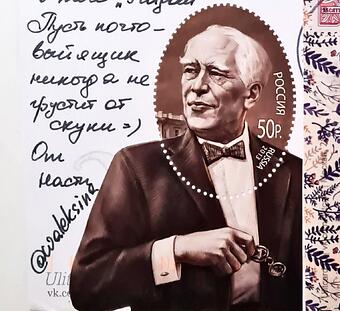 Пусть почто-
вый ящик
никогда не
грустит от
скуки =)
От
Насти
@waleksina
РОССИЯ
50 Р.
RUSSIA
2013
Ulit
vk.co